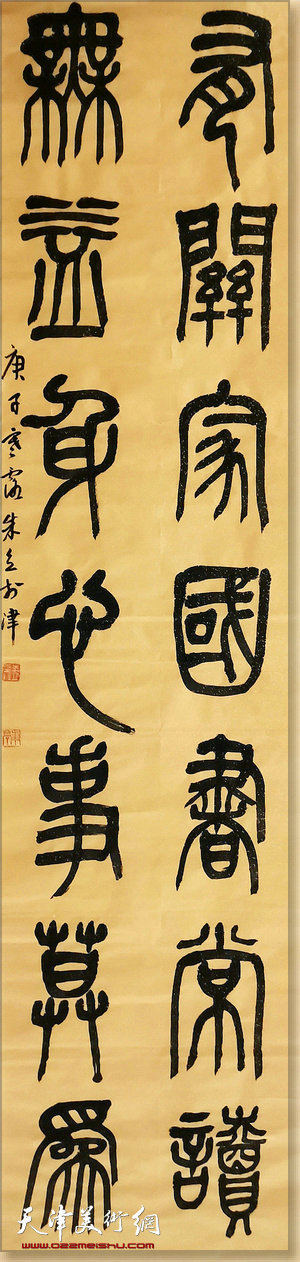 有關家國書常讀
無益身心事莫為
庚子寒露朱立於津
天津美術網
www.022meishu.com